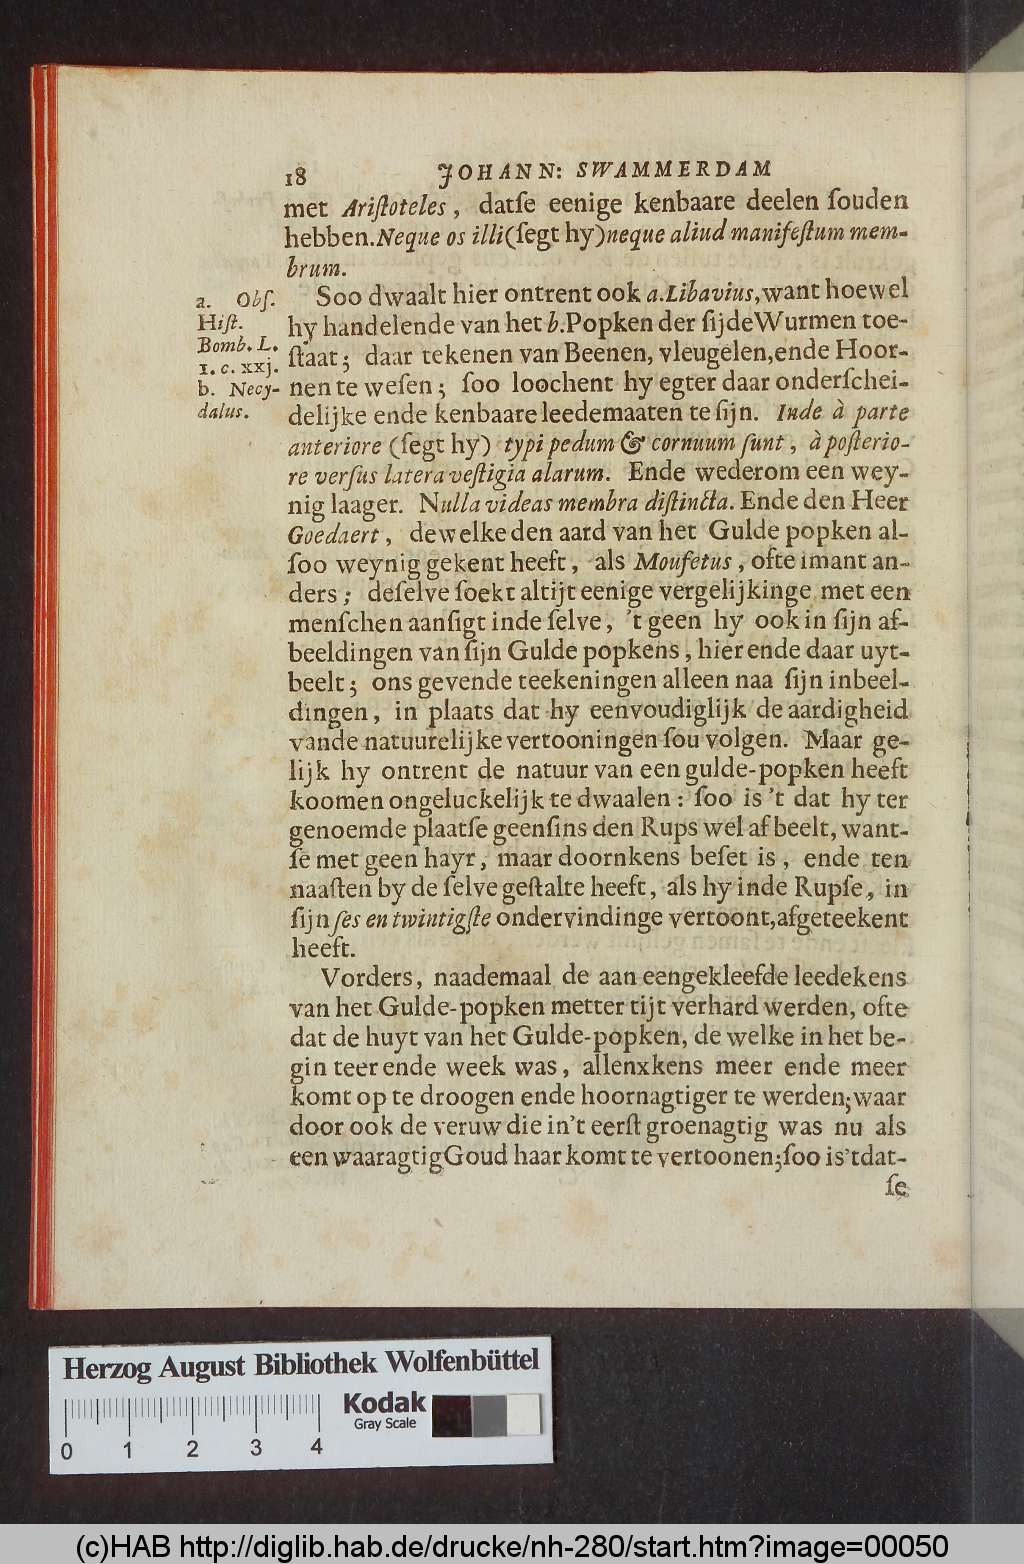 18 JOHANN: SWAMMERDAM
met Ariſtoteles, datſe eenige kenbaare deelen ſouden
hebben. Neque os illi (ſegt hy) neque aliud manifeſtum mem-
brum.
Soo dwaalt hier ontrent ook a. Libavius, want hoewel
hy handelende van het b. Popken der ſijde Wurmen toe-
ſtaat; daar tekenen van Beenen, vleugelen, ende Hoor-
nen te weſen; ſoo loochent hy egter daar onderſchei-
delijke ende kenbaare leedemaaten te ſijn. Inde à parte
anteriore (ſegt hy) typi pedum & cornuum ſunt, à poſterio-
re verſus latera veſtigia alarum. Ende wederom een wey-
nig laager. Nulla videas membra diſtincta. Ende den Heer
Goedaert, de welke den aard van het Gulde popken al-
ſoo weynig gekent heeft, als Moufetus, ofte imant an-
ders; deſelve ſoekt altijt eenige vergelijkinge met een
menſchen aanſigt inde ſelve, 't geen hy ook in ſijn af-
beeldingen van ſijn Gulde popkens, hier ende daar uyt-
beelt; ons gevende teekeningen alleen naa ſijn inbeel-
dingen, in plaats dat hy eenvoudiglijk de aardigheid
vande natuurelijke vertooningen ſou volgen. Maar ge-
lijk hy ontrent de natuur van een gulde-popken heeft
koomen ongeluckelijk te dwaalen: ſoo is 't dat hy ter
genoemde plaatſe geenſins den Rups wel af beelt, want-
ſe met geen hayr, maar doornkens beſet is, ende ten
naaſten by de ſelve geſtalte heeft, als hy inde Rupſe, in
ſijn ſes en twintigſte ondervindinge vertoont, afgeteekent
heeft.
Vorders, naademaal de aan eengekleefde leedekens
van het Gulde-popken metter tijt verhard werden, ofte
dat de huyt van het Gulde-popken, de welke in het be-
gin teer ende week was, allenxkens meer ende meer
komt op te droogen ende hoornagtiger te werden; waar
door ook de veruw die in't eerſt groenagtig was nu als
een waaragtig Goud haar komt te vertoonen; ſoo is't dat-
ſe
a. Obſ.
Hiſt.
Bomb. L.
1. c. xxj.
b. Necy-
dalus.
Herzog August Bibliothek Wolfenbüttel
Kodak
Gray Scale
0 1 2 3 4
(c)HAB http://diglib.hab.de/drucke/nh-280/start.htm?image=00050